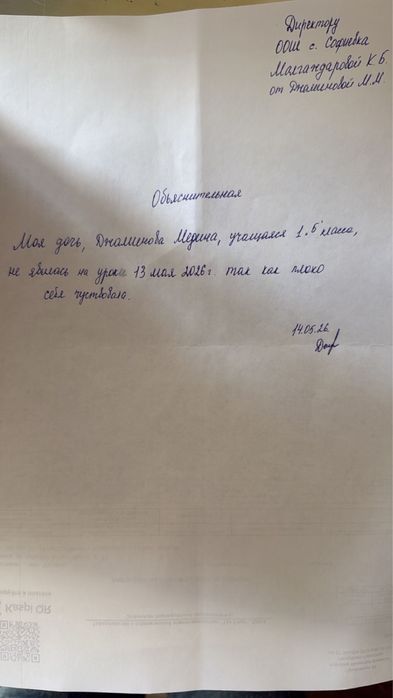 Директору
ООШ с. Софиевка
Молгаждаровой К.Б.
от Джалиновой М.М.
Объяснительная
Моя дочь, Джалинова Медина, учащаяся 1 "Б" класса,
не явилась на уроки 13 мая 2026 г так как плохо
себя чуствовала.
14.05.26
Kaspi QR